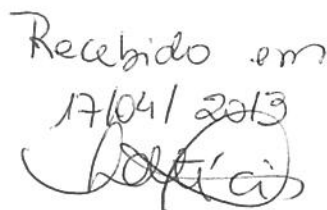 Recebido em
17/04/2013
Letícia